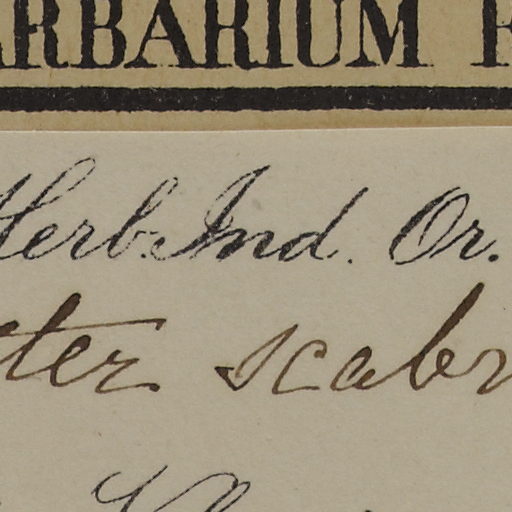 ERBARIUM
Herb. Ind. Or.
ter scabr